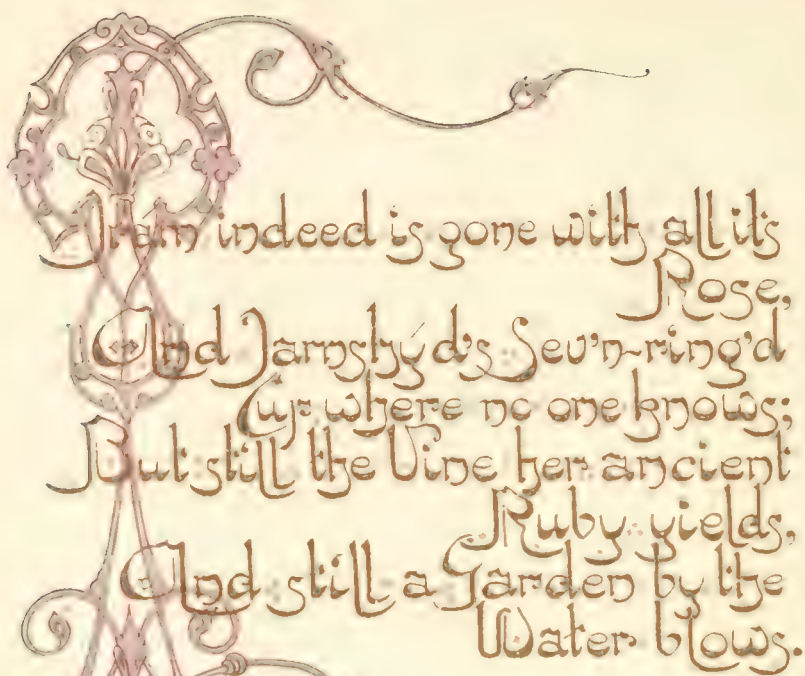 Iram indeed is gone with all its
Rose,
And Jamshyd's Sev'n-ring'd
Cup where no one knows;
But still the Vine her ancient
Ruby yields,
And still a Garden by the
Water blows.